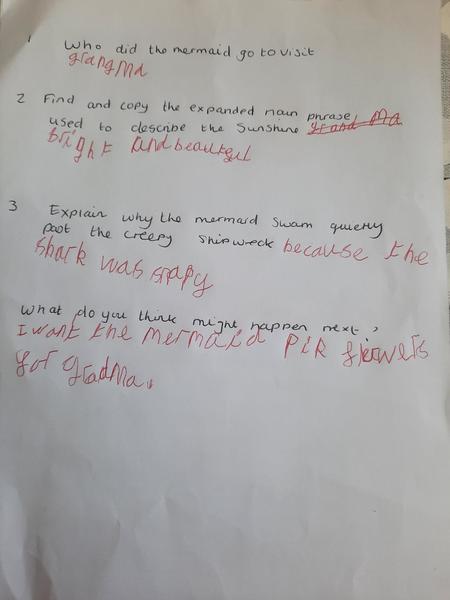 1 Who did the mermaid go to visit
grangma
2 Find and copy the expanded noun phrase,
used to describe the Sunshine grand Ma
bright and beautgul
3 Explain why the mermaid swam quietly
past the creepy shipwreck because the
shark was snapy
What do you think might happen next?
I want the mermaid pik flowers
for gradma.